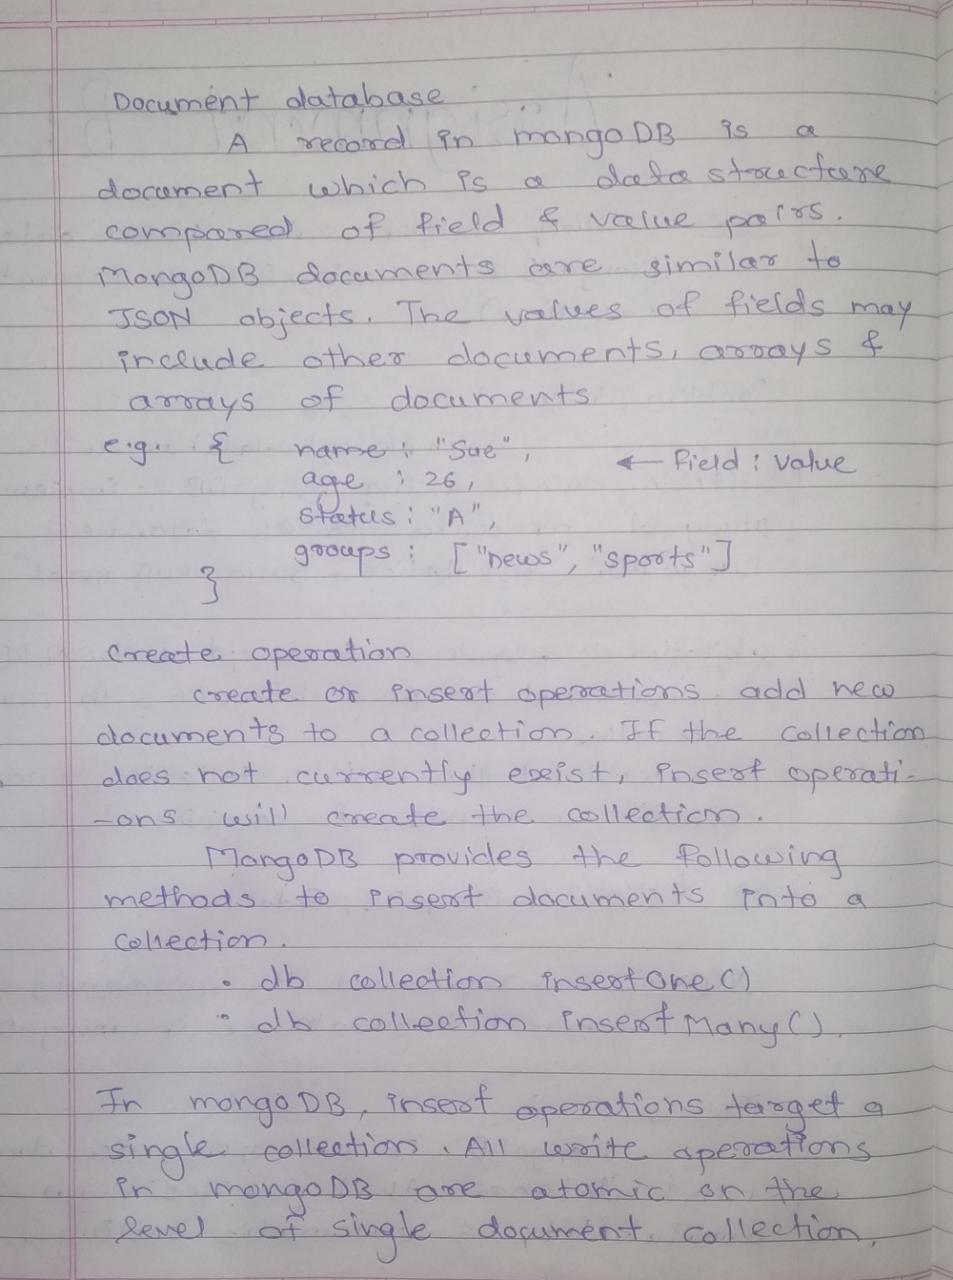 Document database
A record in mongoDB is a
document which is a data structure
compared of field & value pairs.
MongoDB documents are similar to
JSON objects. The values of fields may
include other documents, arrays &
arrays of documents
e.g. { name : "Sue", ← field : value
age : 26,
status : "A",
groups : ["news", "sports"]
}
Create operation
create or insert operations add new
documents to a collection. If the collection
does not currently exist, insert operati-
-ons will create the collection.
MongoDB provides the following
methods to insert documents into a
collection.
• db collection insertOne()
• db collection insertMany().
In mongoDB, insert operations target a
single collection. All write operations
in mongoDB are atomic on the
level of single document collection.